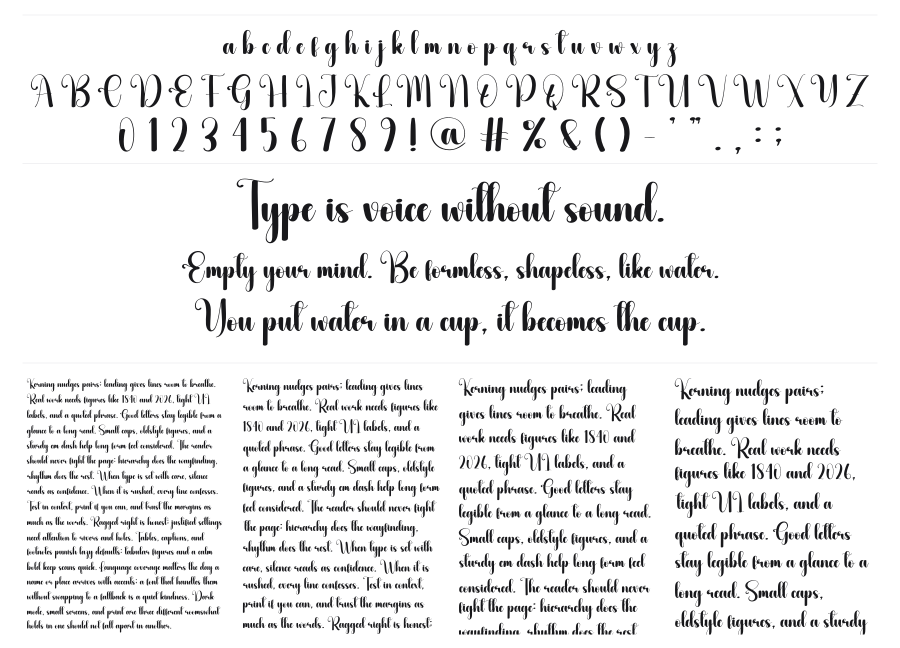 a b c d e f g h i j k l m n o p q r s t u v w x y z
A B C D E F G H I J K L M N O P Q R S T U V W X Y Z
0 1 2 3 4 5 6 7 8 9 ! @ # % & ( ) - ' " . , : ;
Type is voice without sound.
Empty your mind. Be formless, shapeless, like water.
You put water in a cup, it becomes the cup.
Kerning nudges pairs; leading gives lines room to breathe.
Real work needs figures like 1840 and 2026, tight UI
labels, and a quoted phrase. Good letters stay legible from a
glance to a long read. Small caps, oldstyle figures, and a
sturdy em dash help long form feel considered. The reader
should never fight the page: hierarchy does the wayfinding,
rhythm does the rest. When type is set with care, silence
reads as confidence. When it is rushed, every line confesses.
Test in context, print if you can, and trust the margins as
much as the words. Ragged right is honest; justified settings
need attention to rivers and holes. Tables, captions, and
footnotes punish lazy defaults: tabular figures and a calm
bold keep scans quick. Language coverage matters the day a
name or place arrives with accents: a font that handles them
without swapping to a fallback is a quiet kindness. Dark
mode, small screens, and print are three different rooms;what
holds in one should not fall apart in another.
Kerning nudges pairs; leading gives lines
room to breathe. Real work needs figures like
1840 and 2026, tight UI labels, and a
quoted phrase. Good letters stay legible from
a glance to a long read. Small caps, oldstyle
figures, and a sturdy em dash help long form
feel considered. The reader should never fight
the page: hierarchy does the wayfinding,
rhythm does the rest. When type is set with
care, silence reads as confidence. When it is
rushed, every line confesses. Test in context,
print if you can, and trust the margins as
much as the words. Ragged right is honest;
Kerning nudges pairs; leading
gives lines room to breathe. Real
work needs figures like 1840 and
2026, tight UI labels, and a
quoted phrase. Good letters stay
legible from a glance to a long read.
Small caps, oldstyle figures, and a
sturdy em dash help long form feel
considered. The reader should never
fight the page: hierarchy does the
wayfinding, rhythm does the rest.
Kerning nudges pairs;
leading gives lines room to
breathe. Real work needs
figures like 1840 and 2026,
tight UI labels, and a
quoted phrase. Good letters
stay legible from a glance to a
long read. Small caps,
oldstyle figures, and a sturdy